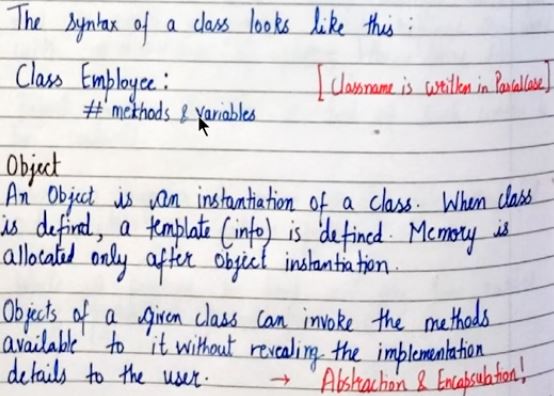 The syntax of a class looks like this :
Class Employee : [Classname is written in PascalCase]
# methods & variables
Object
An Object is an instantiation of a class. When class
is defined, a template (info) is defined. Memory is
allocated only after object instantiation.
Objects of a given class can invoke the methods
available to it without revealing the implementation
details to the user. → Abstraction & Encapsulation!